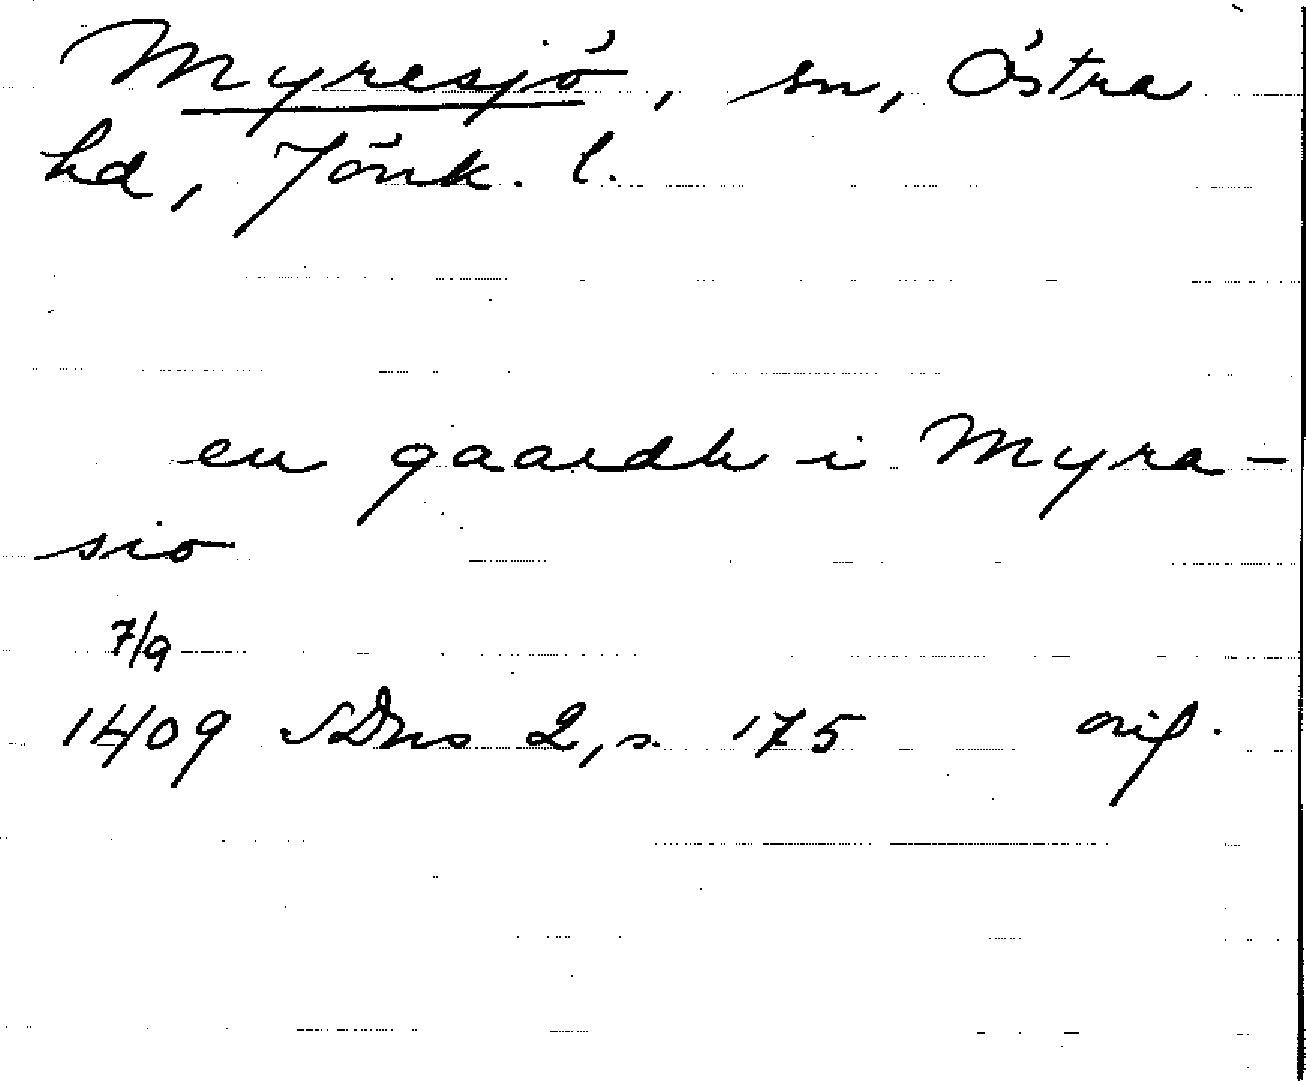 Myresjö, sn, Östra
hd, Jönk. l.
en gaardh i Myra-
sio
7/9
1409 SDns 2, s. 175 orig.